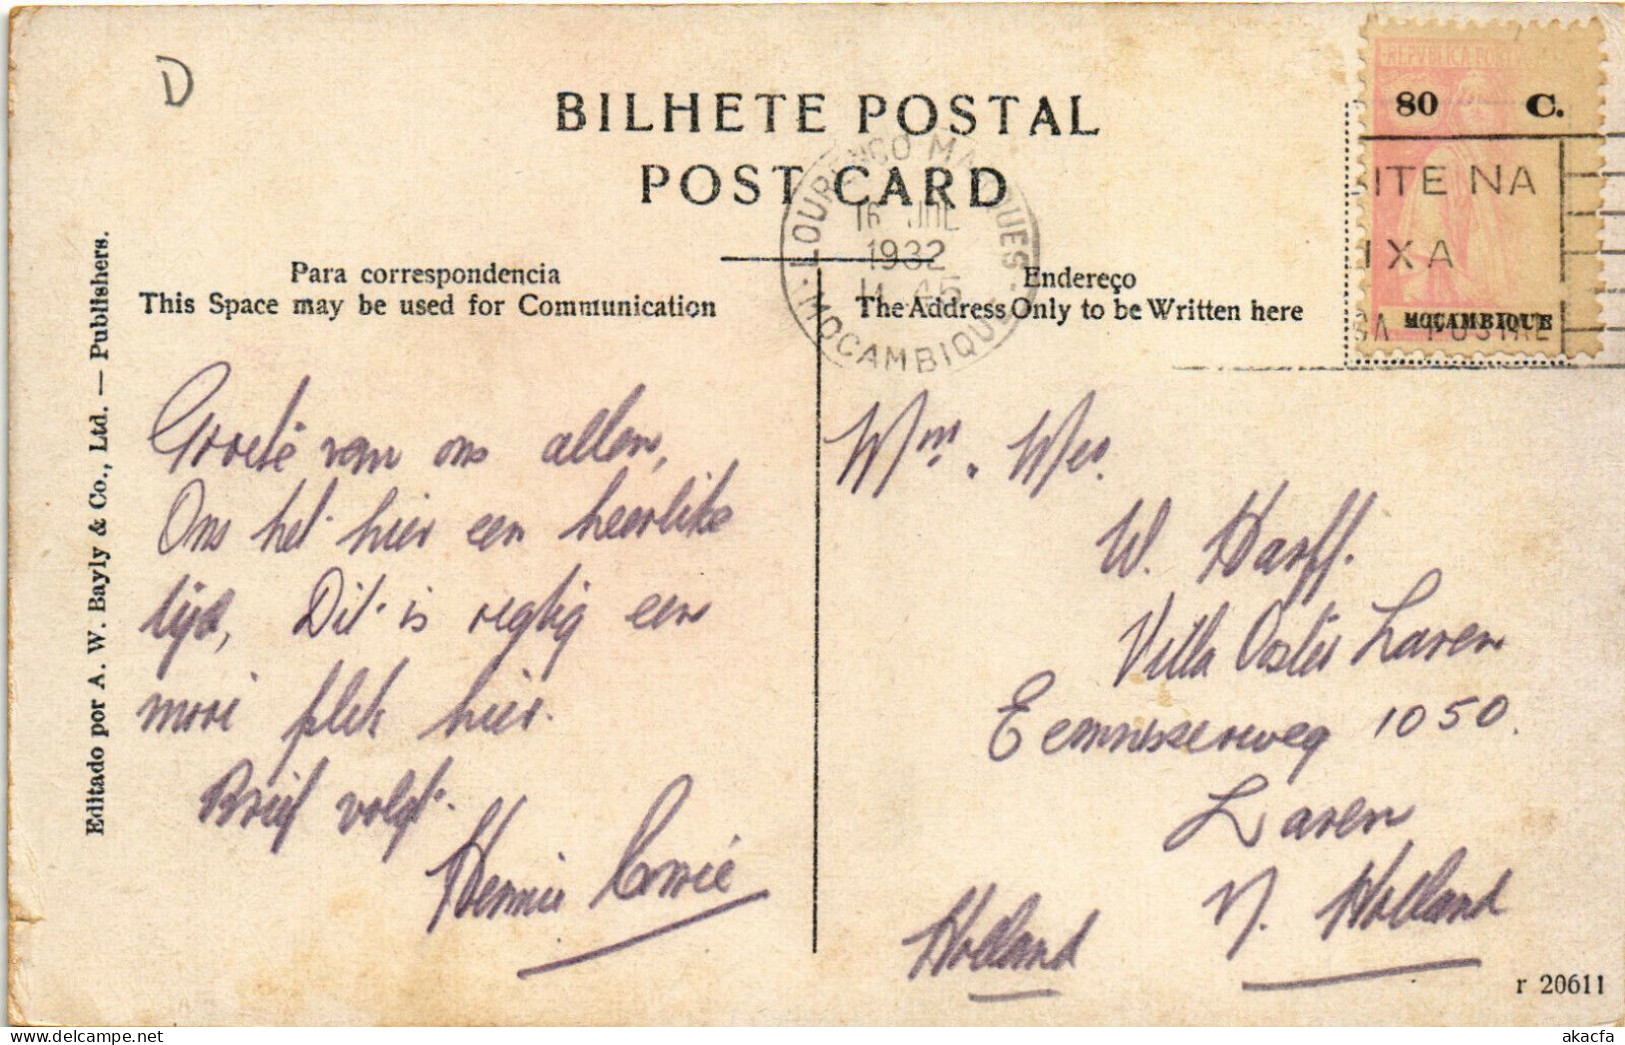 D
BILHETE POSTAL
POST CARD
80 C.
ITE NA
IXA
MOÇAMBIQUE
POSTAL
LOURENÇO MARQUES
16 JUL
1932
MOÇAMBIQUE
Para correspondencia
This Space may be used for Communication
Endereço
The Address Only to be Written here
Editado por A. W. Bayly & Co., Ltd. — Publishers.
Groete van ons allen,
Ons het hier een heerlike
tijd, Dit is regtig een
mooi plek hier.
Brief volgt.
Hennie
W. Harff.
Villa Oster Laren
Eemnesserweg 1050.
Laren
N. Holland
Holland
r 20611
akacfa